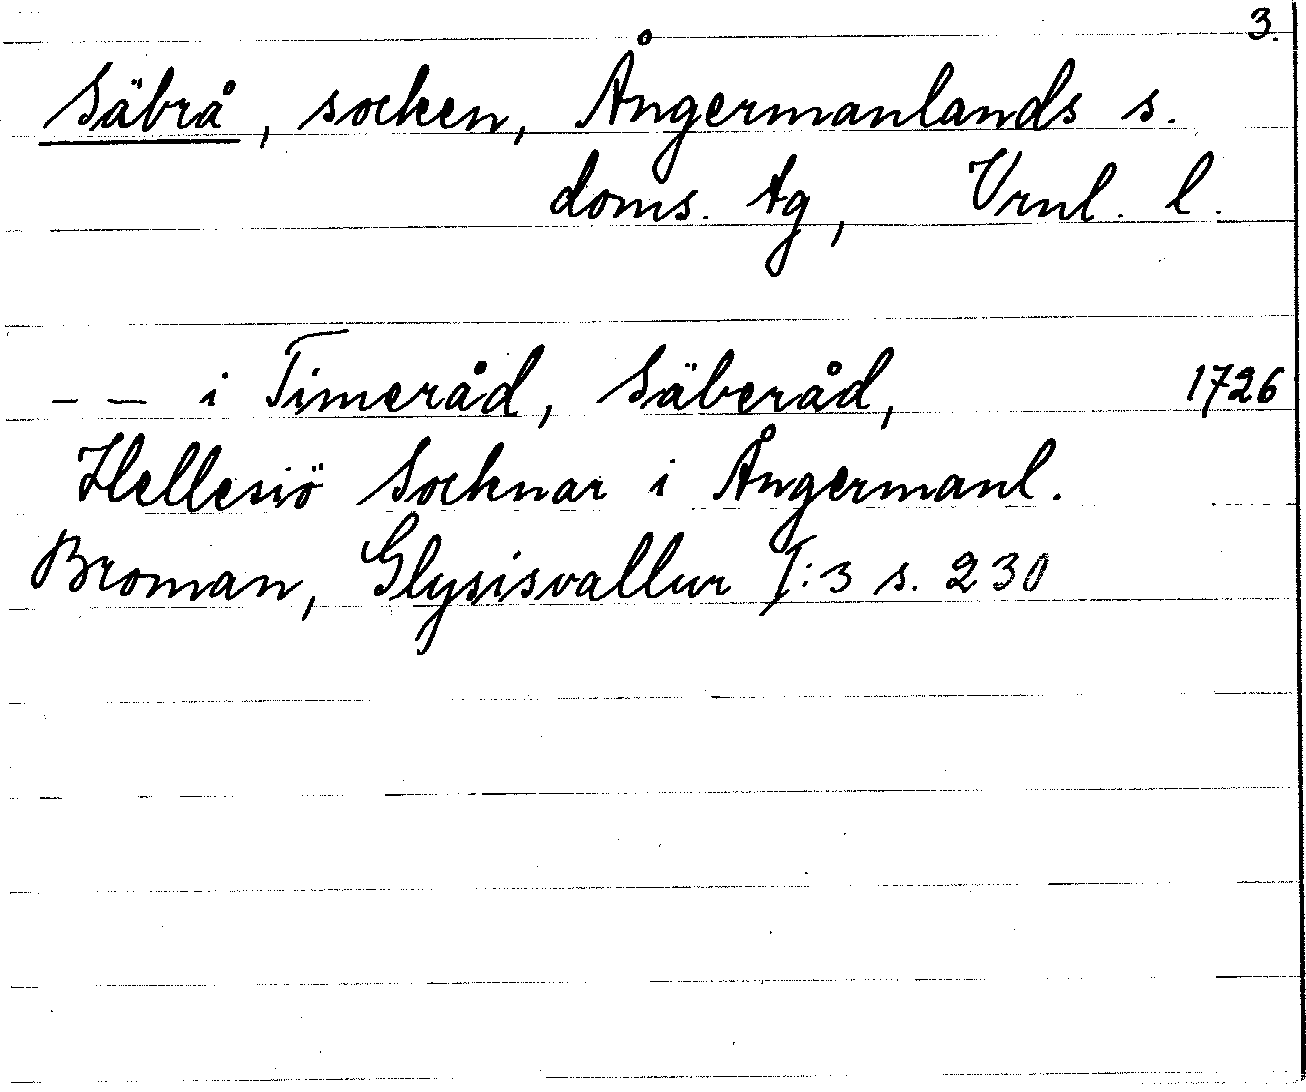 3.
Säbrå, socken, Ångermanlands s.
doms. tg, Vrnl. l.
– – i Timeråd, Säberåd, 1726
Hellesiö Socknar i Ångermanl.
Broman, Glysisvallur I:3 s. 230